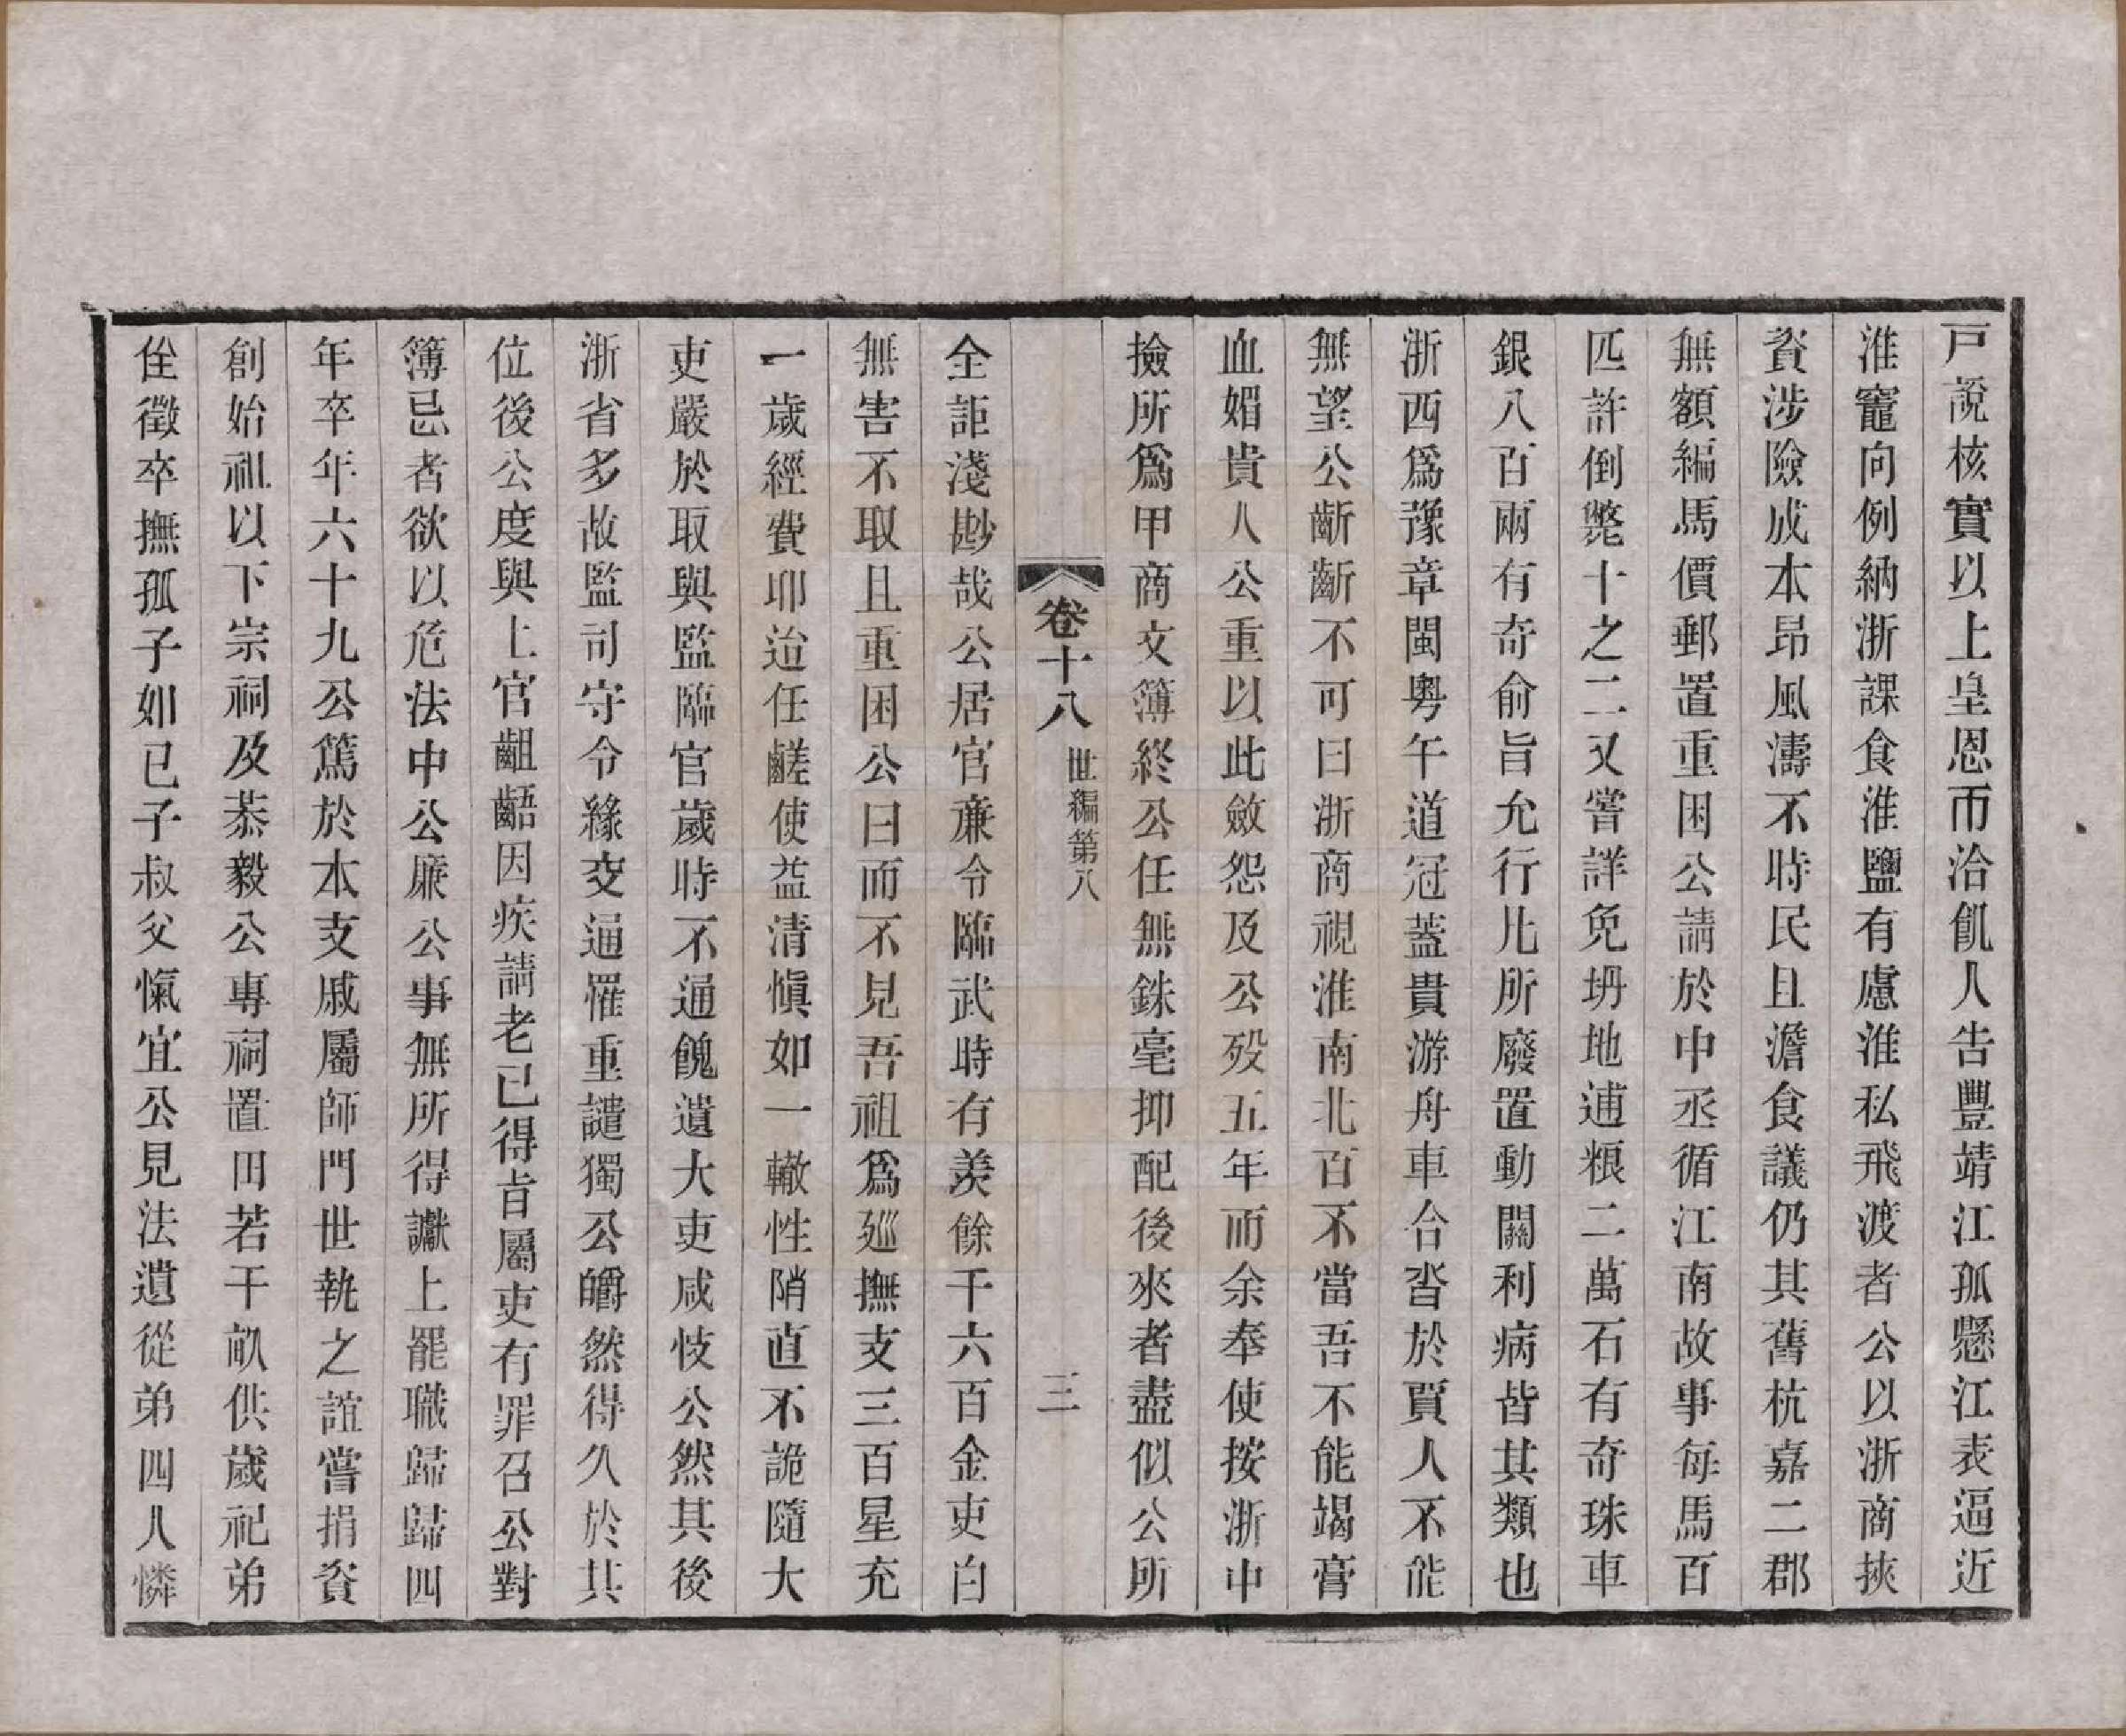 戸説核實以上皇恩帀洽飢人告豐靖江孤懸江表逼近
淮竈向例納浙課食淮鹽有慮淮私飛渡者公以浙商挾
資涉險成本昂風濤不時民且澹食議仍其舊杭嘉二郡
無額編馬價郵置重困公請於中丞循江南故事每馬百
匹許倒斃十之二又嘗詳免坍地逋粮二萬石有奇珠車
銀八百兩有奇俞旨允行凡所廢置動關利病皆其類也
浙西爲豫章閩粤午道冠蓋貴游舟車合沓於賈人不能
無望公齗齗不可曰浙商視淮南北百不當吾不能竭膏
血媚貴人公重以此斂怨及公殁五年而余奉使按浙中
撿所爲甲商文簿終公任無銖毫抑配後來者盡似公所
卷十八 世編第八 三
全詎淺尠哉公居官亷令臨武時有羨餘千六百金吏白
無害不取且重困公曰而不見吾祖爲廵撫支三百星充
一歲經費耶迨任鹺使益清愼如一轍性陗直不詭隨大
吏嚴於取與監臨官歲時不通餽遺大吏咸忮公然其後
浙省多故監司守令緣交通罹重譴獨公皭然得久於其
位後公度與上官齟齬因疾請老已得旨屬吏有罪召公對
簿忌者欲以危法中公廉公事無所得讞上罷職歸歸四
年卒年六十九公篤於本支戚屬師門世執之誼嘗捐資
創始祖以下宗祠及恭毅公專祠置田若干畝供歲祀弟
侄徵卒撫孤子如已子叔父愾宜公見法遺從弟四人憐